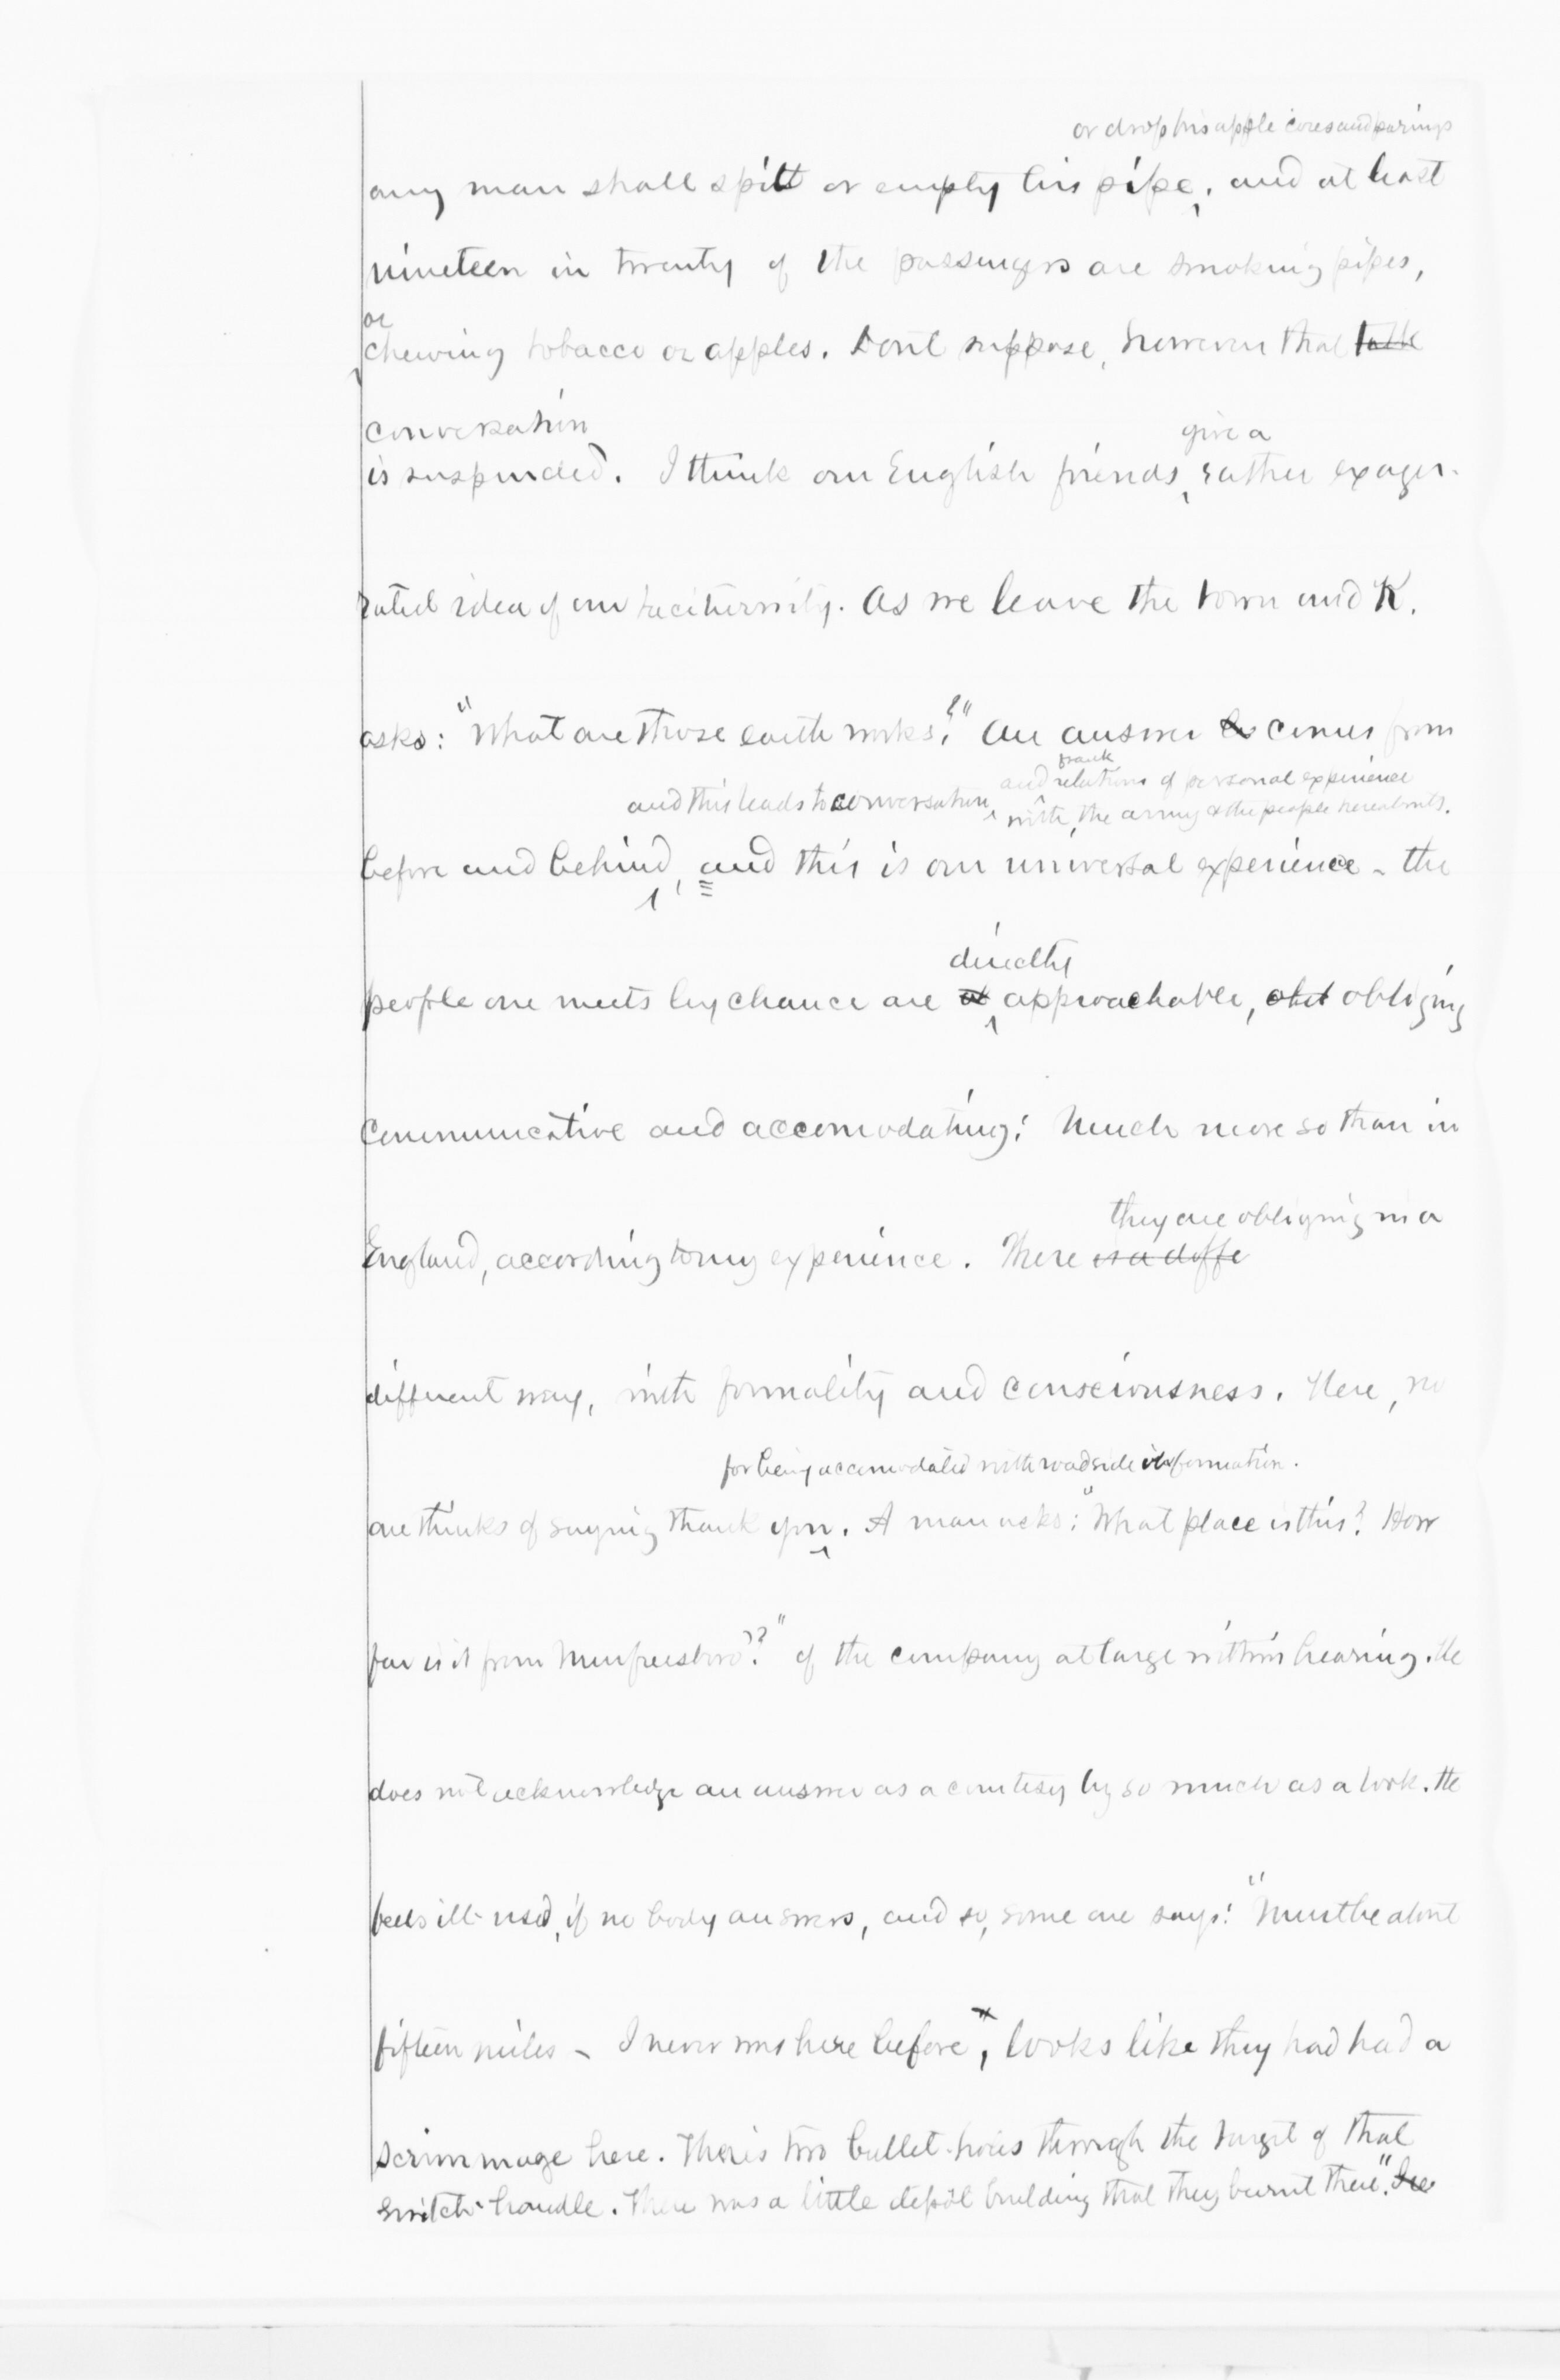 or drop his apple cores and parings
any man shall spitt or empty his pipe, and at least
nineteen in twenty of the passengers are smoking pipes,
or
chewing tobacco or apples. Dont suppose, however that talk
conversation
give a
is suspended. I think our English friends, rather exager-
rated idea of our taciturnity. As we leave the town and K.
asks: "What are those earth works?" An answer co comes from
frank
and relations of personal experience
and this leads to conversation, with, the army & the people hereabouts.
before and behind, and this is our universal experience - the
directly
people one meets by chance are at approachable, obli obliging
communicative and accomodating: Much more so than in
they are obligying in a
England, according to my experience. There is a diffe
different way, with formality and consciousness. Here, no
for being accomodated with roadside information.
one thinks of saying thank you. A man asks: "What place is this? How
far is it from Murfreesboro??" of the company at large within hearing. He
does not acknowledge an answer as a courtesy by so much as a look. He
feels ill-used, if no body answers, and so, some one says: "Must be about
fifteen miles - I never was here before, looks like they had had a
scrimmage here. There's two bullet-holes through the target of that
switch-handle. There was a little depot building that they burnt there."